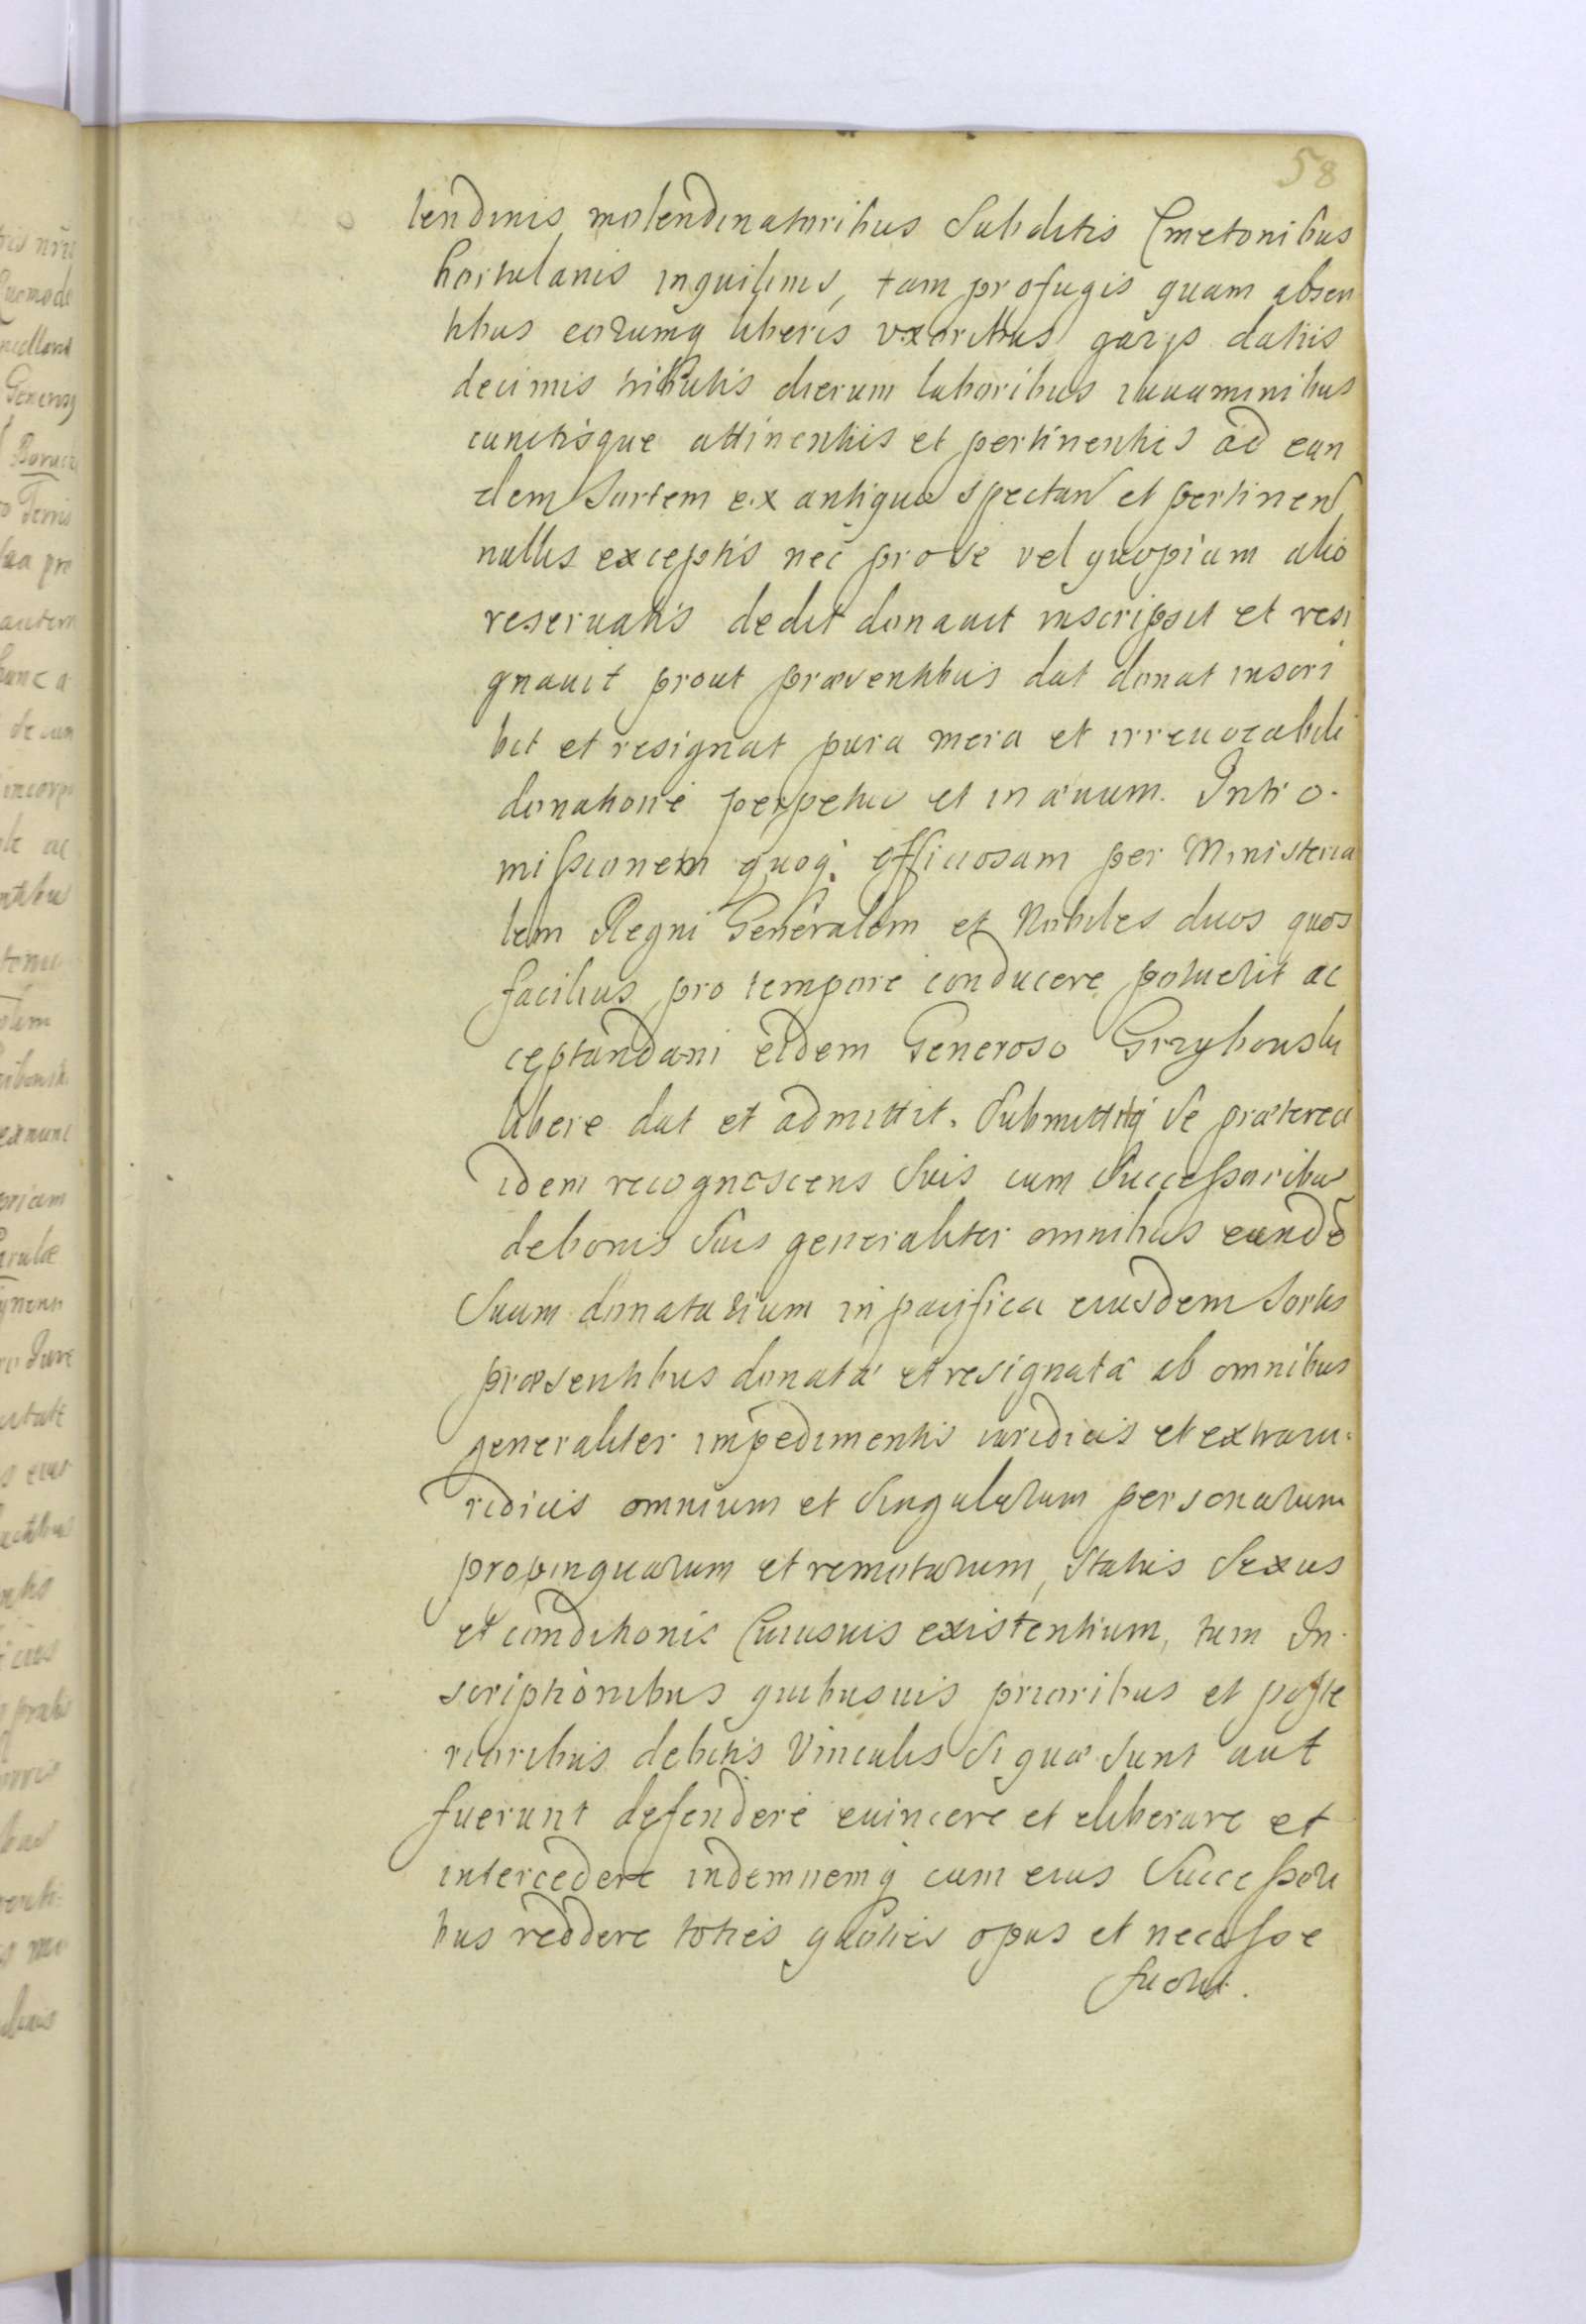 58
lendinis molendinatoribus Subditis Cmetonibus
hortulanis inquilinis, tam profugis quam absen
tibus eorumq liberis uxoribus datiis
decimis tributis dierum laboribus iuuaminibus
cunctisque attinentiis et pertinentiis ad ean
dem Sortem ex antiquo spectan et pertinen
nullis exceptis nec pro se vel quopiam alio
reseruatis dedit donauit inscripsit et resi
gnauit prout præsentibus dat donat inscri
bit et resignat pura mera et irreuocabili
donatione perpetuo et in æuum. Intro.
missionem quoq. officiosam per Ministeria
lem Regni Generalem et Nobiles duos quos
facilius pro tempore conducere poluerit ac
ceptandam eidem Generoso Grzybouski
libere dat et admittit. Submittitq Se præterea
idem recognoscens Suis cum Successoribus
de bonis Suis generaliter omnibus eundē
Suum donatarium in pacifica eiusdem Sortis
præsentibus donatâ et resignatâ ab omnibus
generaliter impedimentis iuridicis et extraiu.
ridicis omnium et Singularum personarum
propinquarum et remotarum, Status Sexus
et conditionis Cuiusuis existentium, tum In.
scriptionibus quibusuis prioribus et poste
rioribus debitis Vinculis Si quæ Sunt aut
fuerunt defendere euincere et eliberare et
intercedere indemnemq cum eius Successori
bus reddere toties quoties opus et necesse
fuerit.